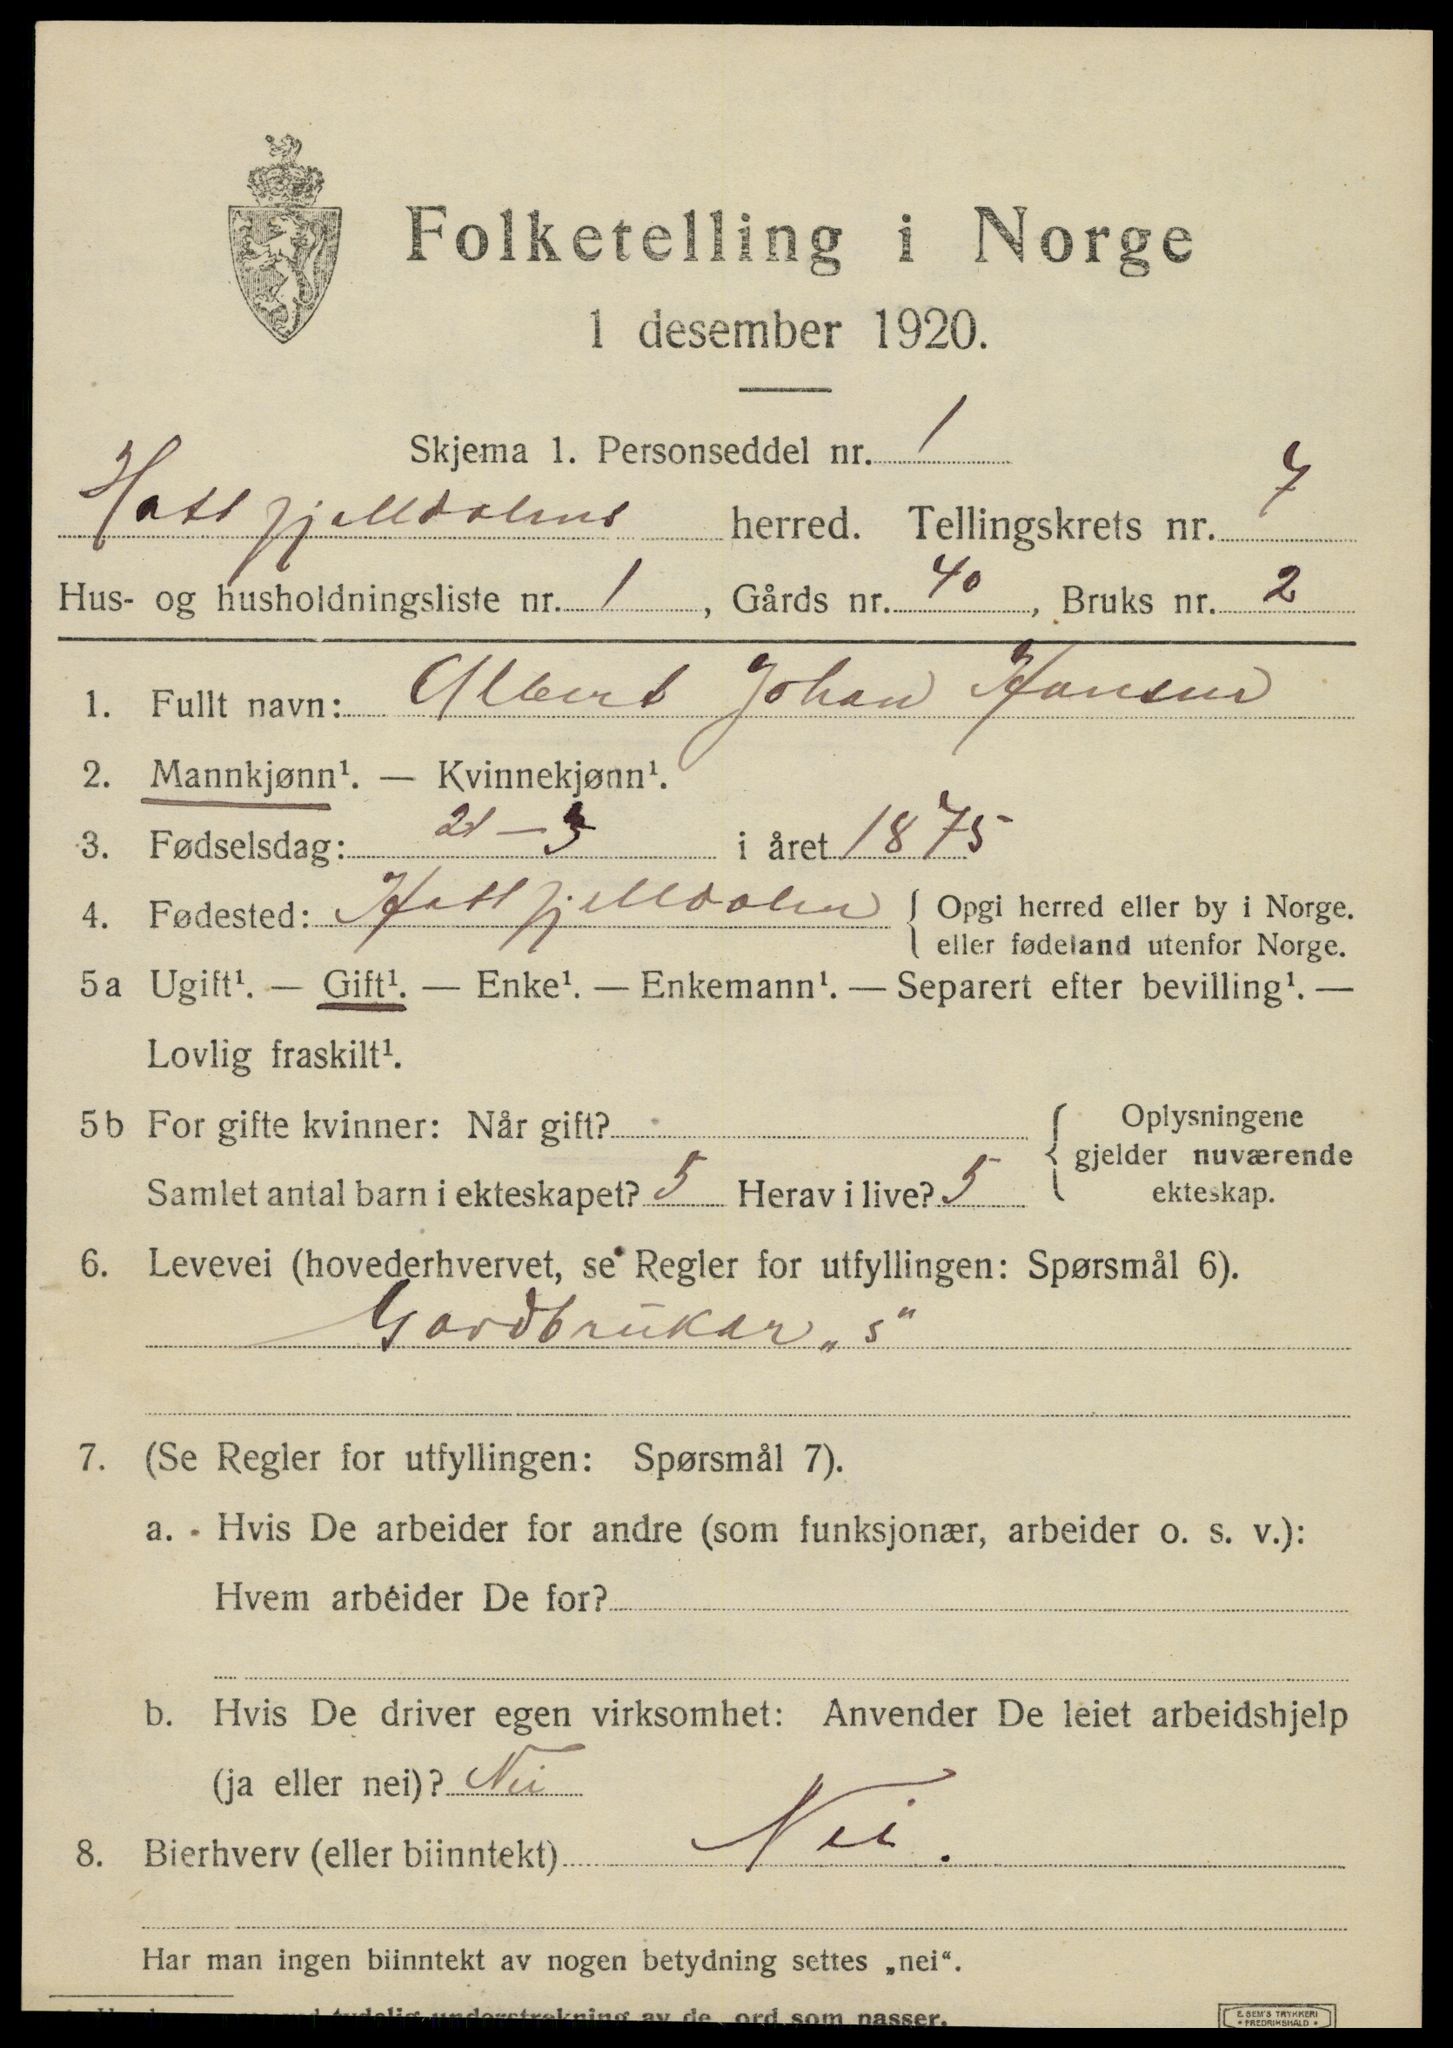 Folketelling i Norge
1 desember 1920.
Skjema 1. Personseddel nr. 1
Hattfjelldalens herred. Tellingskrets nr. 7
Hus- og husholdningsliste nr. 1, Gårds nr. 40, Bruks nr. 2
1. Fullt navn: Albert Johan Hansen
2. Mannkjønn¹. — Kvinnekjønn¹.
3. Fødselsdag: 21 — 3 i året 1875
4. Fødested: Hattfjelldalen { Opgi herred eller by i Norge.
eller fødeland utenfor Norge.
5a Ugift¹. — Gift¹. — Enke¹. — Enkemann¹. — Separert efter bevilling¹. —
Lovlig fraskilt¹.
5b For gifte kvinner: Når gift? { Oplysningene
gjelder nuværende
Samlet antal barn i ekteskapet? 5 Herav i live? 5 ekteskap.
6. Levevei (hovederhvervet, se Regler for utfyllingen: Spørsmål 6).
Gardbrukar „s“
7. (Se Regler for utfyllingen: Spørsmål 7).
a. Hvis De arbeider for andre (som funksjonær, arbeider o. s. v.):
Hvem arbeider De for?
b. Hvis De driver egen virksomhet: Anvender De leiet arbeidshjelp
(ja eller nei)? Nei
8. Bierhverv (eller biinntekt) Nei.
Har man ingen biinntekt av nogen betydning settes „nei“.
tydelig understrekning av de ord som passer.
E. SEM'S TRYKKERI
• FREDRIKSHALD •